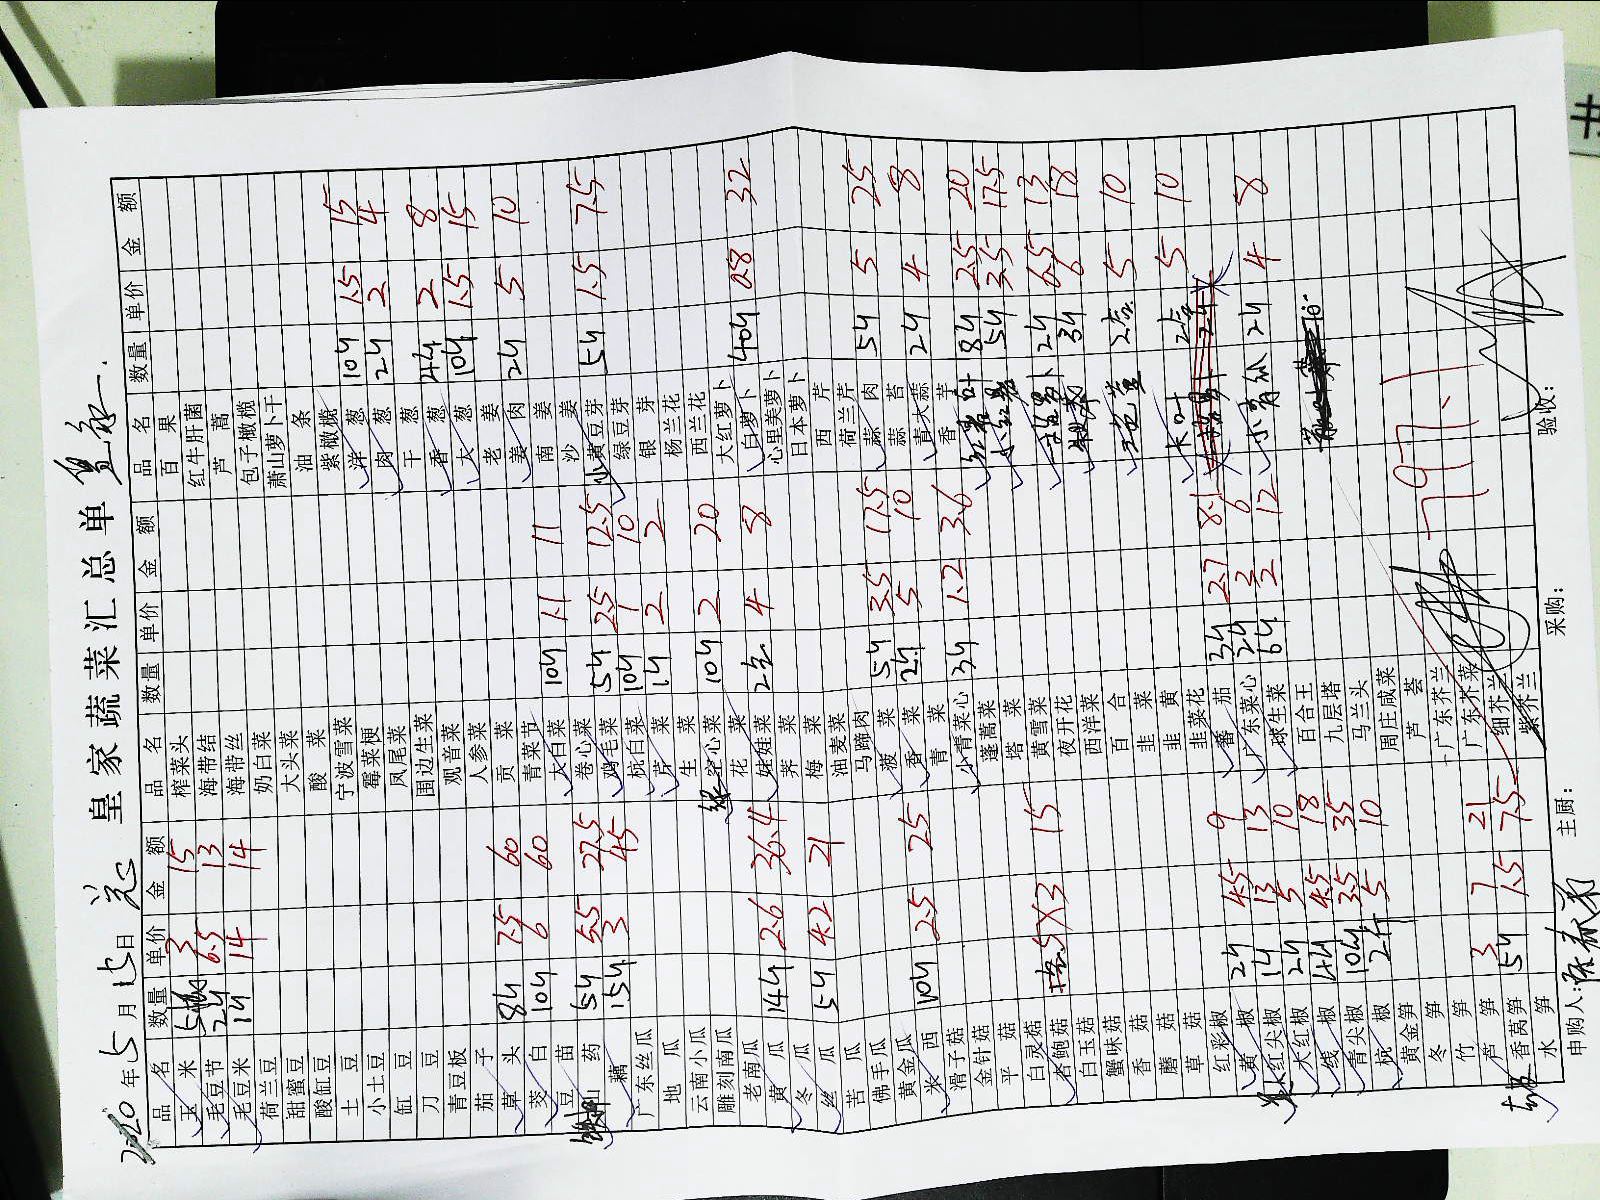 皇家蔬菜汇总单
2020年5月15日
品名 数量 单价 金额 品名 数量 单价 金额 品名 数量 单价 金额
玉米 3 15 榨菜头 百果
毛豆节 2斤 6.5 13 海带结 红牛肝菌
毛豆米 1斤 14 14 海带丝 芦蒿
荷兰豆 奶白菜 包子橄榄
甜蜜豆 大头菜 萧山萝卜干
酸缸豆 酸菜 油条
土豆 宁波雪菜 紫橄榄
小土豆 霉菜梗 洋葱 10斤 1.5 15
缸豆 凤尾菜 肉葱 2斤 2 4
刀豆 围边生菜 干葱
青豆板 观音菜 香葱 4斤 2 8
茄子 人参菜 大葱 10斤 1.5 15
草头 8斤 7.5 60 贡菜 老姜
茭白 10斤 6 60 青菜节 姜肉 2斤 5 10
豆苗 大白菜 10斤 1.1 11 南姜
山药 5斤 5.5 27.5 卷心菜 沙姜
藕 15斤 3 45 鸡毛菜 5斤 2.5 12.5 小黄豆芽 5斤 1.5 7.5
广东丝瓜 杭白菜 10斤 1 10 绿豆芽
地瓜 芹菜 1斤 2 2 银芽
云南小瓜 生菜 杨兰花
雕刻南瓜 空心菜 10斤 2 20 西兰花
老南瓜 花菜 大红萝卜
黄瓜 14斤 2.6 36.4 娃娃菜 2包 4 8 白萝卜 40斤 0.8 32
冬瓜 荠菜 心里美萝卜
丝瓜 5斤 4.2 21 梅菜 日本萝卜
苦瓜 油麦菜 西芹
佛手瓜 马蹄肉 荷兰芹
黄金瓜 菠菜 5斤 3.5 17.5 蒜肉 5斤 5 25
米西 10斤 2.5 25 香菜 2斤 5 10 蒜苔
滑子菇 青菜 青大蒜 2斤 4 8
金针菇 小青菜心 3斤 1.2 3.6 香芋
平菇 蓬蒿菜 8斤 2.5 20
白灵菇 塔菜 5斤 3.5 17.5
杏鲍菇 5×3 15 黄雪菜 2斤 6.5 13
白玉菇 夜开花 3斤 6 18
蟹味菇 西洋菜
香菇 百合 2盒 5 10
蘑菇 韭菜
草菇 韭黄 2盒 5 10
红彩椒 韭菜花
黄椒 2斤 4.5 9 番茄 3斤 2.7 8.1
红尖椒 1斤 13 13 广东菜心 2斤 3 6 小青瓜 2斤 4 8
大红椒 2斤 5 10 球生菜 6斤 2 12
线椒 4斤 4.5 18 百合王
青尖椒 10斤 3.5 35 九层塔
杭椒 2斤 5 10 马兰头
黄金笋 周庄咸菜
冬笋 芦荟
竹笋 广东芥兰
芦笋 3 7 21 广东芥菜
香莴笋 5斤 1.5 7.5 细芥兰
水笋 紫芥兰
797.1
申购人: 主厨: 采购: 验收: